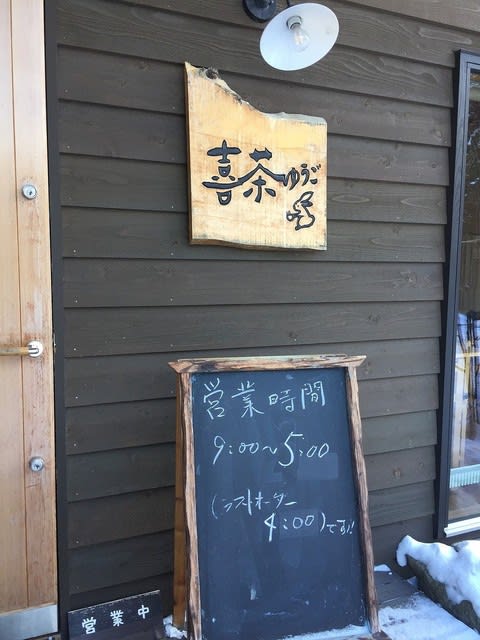 喜茶ゆうご
営業時間
9:00〜5:00
(ラストオーダー
4:00)です!!
営業中